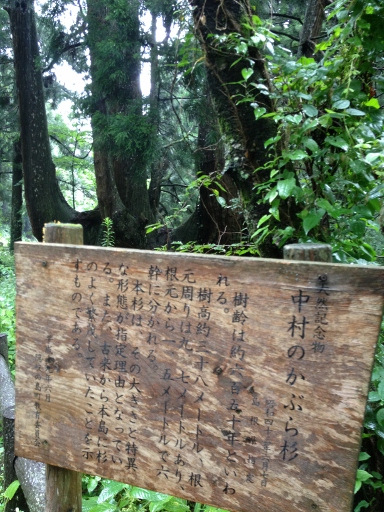 天然記念物
中村のかぶら杉
樹齢は約六百五十年といわ
れる。
樹高約三十八メートル、根
元周りは九・七メートルあり、
根元から一・五メートルで六
幹に分かれる。
本杉は、その大きさと特異
な形態が指定理由となってい
る。また、古来から本島に杉
のよく繁茂していたことを示
すものである。